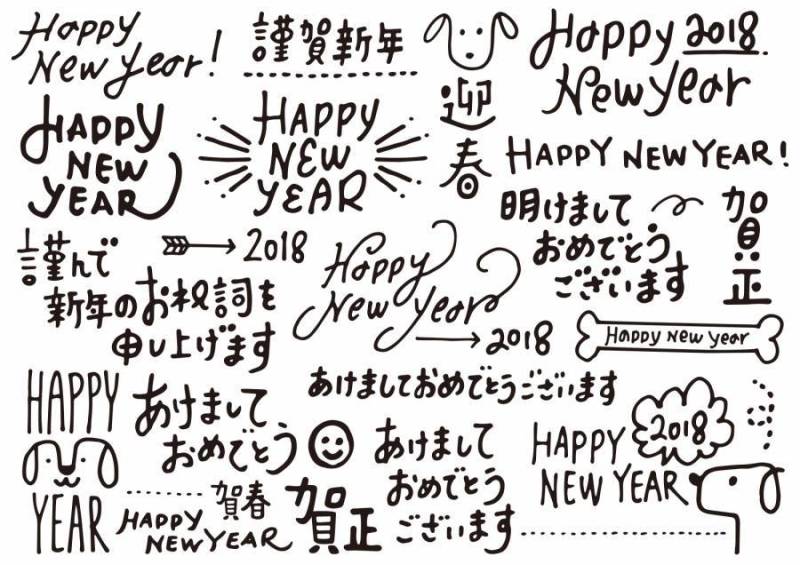 Happy
New Year!
謹賀新年
Happy 2018
New Year
HAPPY
NEW
YEAR
HAPPY
NEW
YEAR
迎春
HAPPY NEW YEAR!
謹んで
新年のお祝詞を
申し上げます
2018
Happy
New Year
2018
明けまして
おめでとう
ございます
賀正
Happy New Year
あけましておめでとうございます
HAPPY
YEAR
あけまして
おめでとう
賀春
HAPPY
NEW YEAR
賀正
あけまして
おめでとう
ございます
2018
HAPPY
NEW YEAR